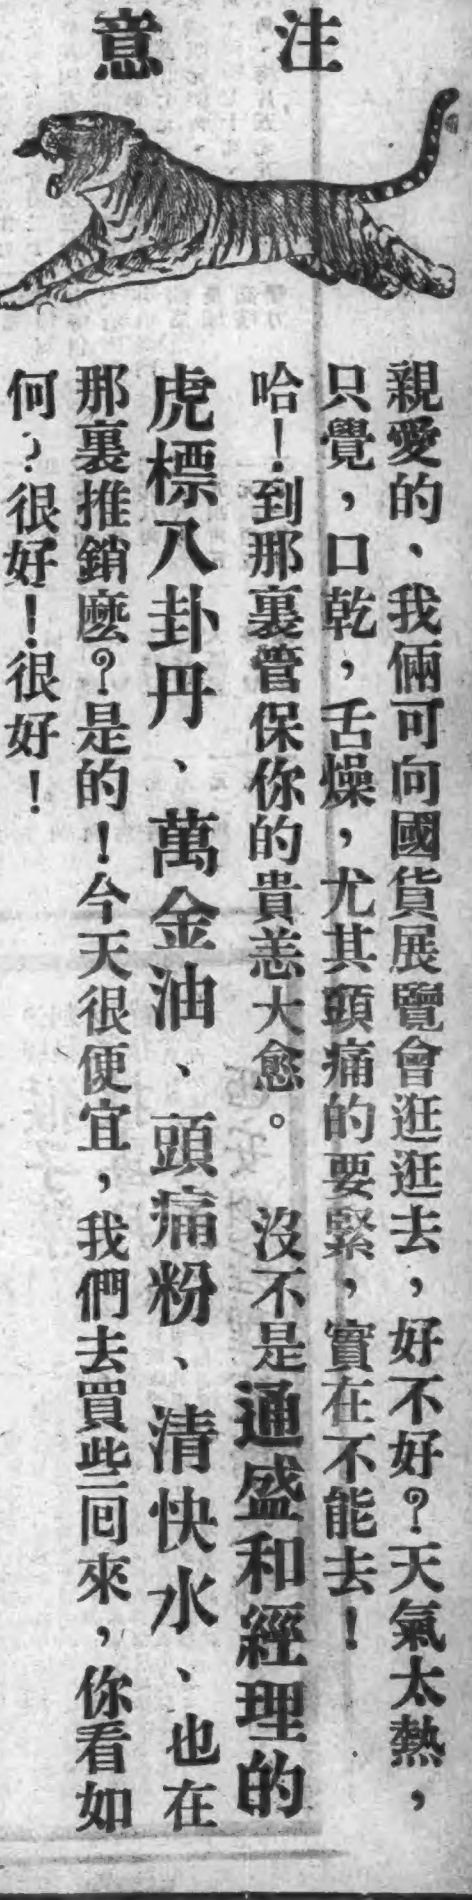 注意
親愛的、我倆可向國貨展覽會逛逛去，好不好？天氣太熱，
只覺，口乾，舌燥，尤其頭痛的要緊，實在不能去！
哈！到那裏管保你的貴恙大愈。　沒不是通盛和經理的
虎標八卦丹、萬金油、頭痛粉、清快水、也在
那裏推銷麽？是的！今天很便宜，我們去買些回來，你看如
何？很好！很好！